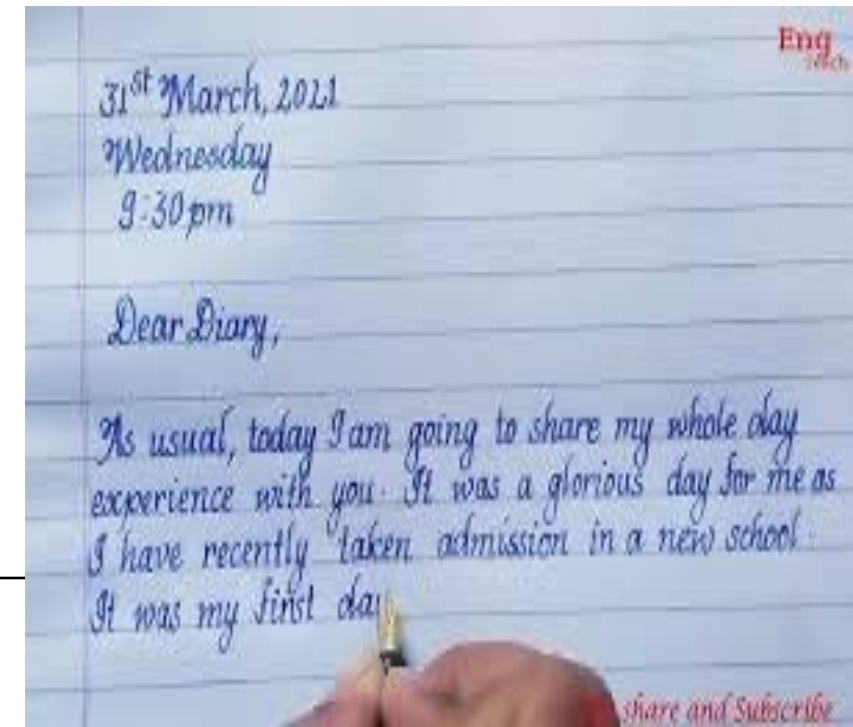 Eng
31st March, 2021
Wednesday
9:30 pm
Dear Diary,
As usual, today I am going to share my whole day
experience with you. It was a glorious day for me as
I have recently taken admission in a new school.
It was my first day
share and Subscribe